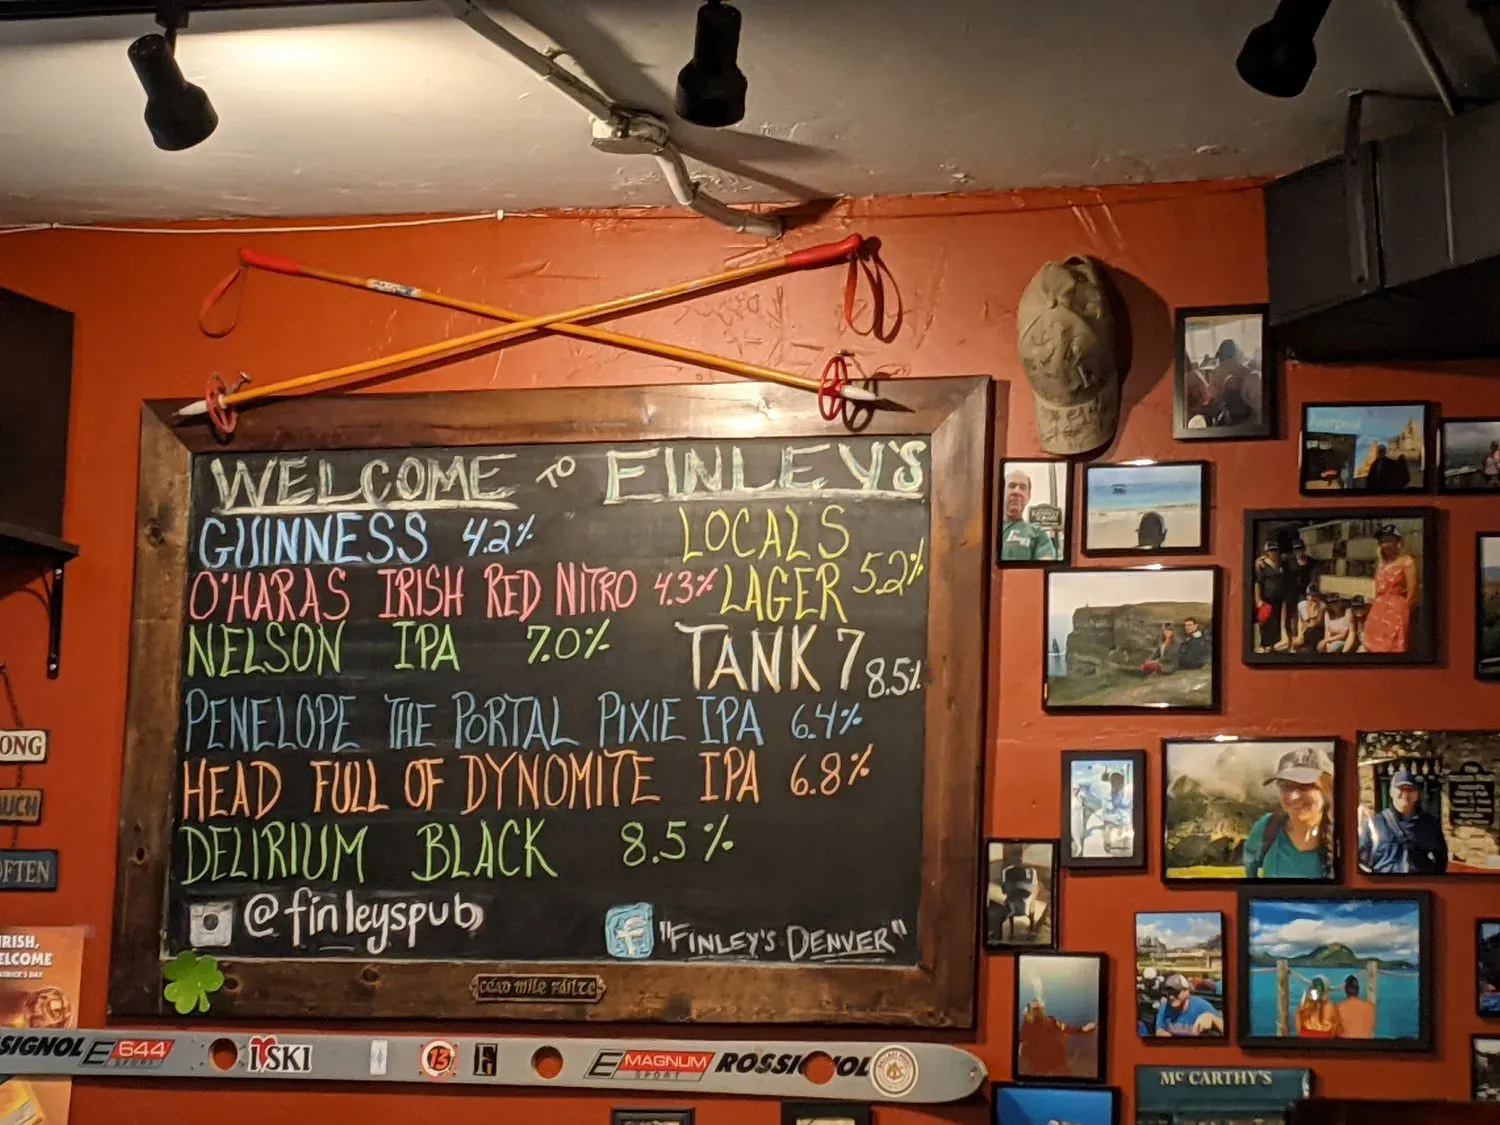 WELCOME TO FINLEY'S
GUINNESS 4.2%
LOCALS
LAGER 5.2%
O'HARAS IRISH RED NITRO 4.3%
NELSON IPA 7.0%
TANK 7 8.5%
PENELOPE THE PORTAL PIXIE IPA 6.4%
HEAD FULL OF DYNOMITE IPA 6.8%
DELIRIUM BLACK 8.5%
@finleyspub
f "FINLEY'S DENVER"
CEAD MILE FAILTE
ONG
UCH
OFTEN
IRISH,
ELCOME
SSIGNOL E 644 SPORT I SKI 13 E MAGNUM SPORT ROSSIGNOL
MCCARTHY'S